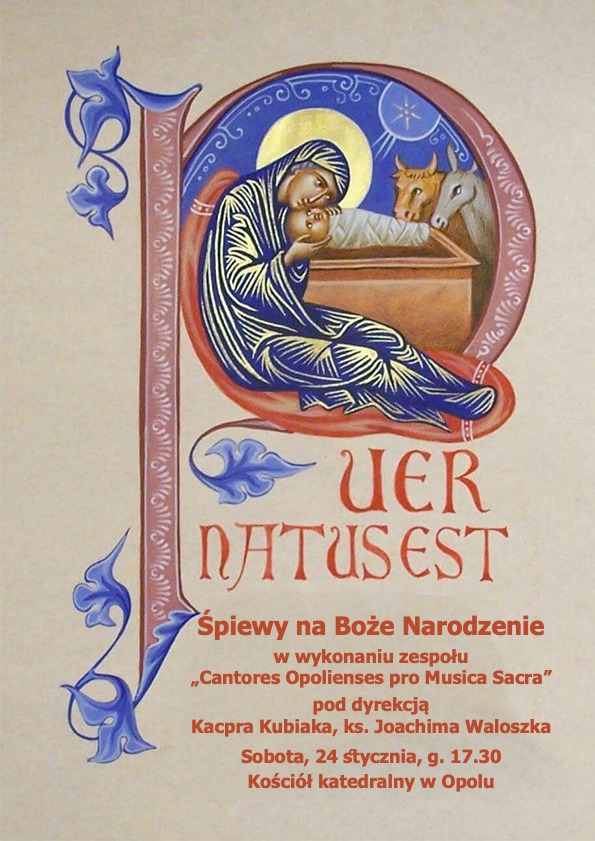 PUER
NATUS EST
Śpiewy na Boże Narodzenie
w wykonaniu zespołu
„Cantores Opolienses pro Musica Sacra”
pod dyrekcją
Kacpra Kubiaka, ks. Joachima Waloszka
Sobota, 24 stycznia, g. 17.30
Kościół katedralny w Opolu